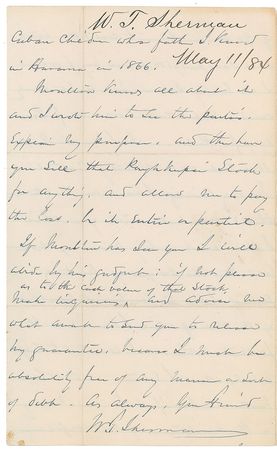 W. T. Sherman
May 11/84
Cuban Children whose father I knew
in Havana in 1866.
Moulton knows all about it
and I wrote him to see the parties.
Explain my purpose, and then have
you sell that Poughkeepsie Stock
for anything, and allow me to pay
the loss, be it entire or partial.
If Moulton has seen you I will
abide by his judgmt: if not please
as to the cash value of that Stock,
make inquiries, and advise me
what amount to send you to release
my guarantee, because I must be
absolutely free of any manner or sort
of debts. As always, Your friend
W. T. Sherman